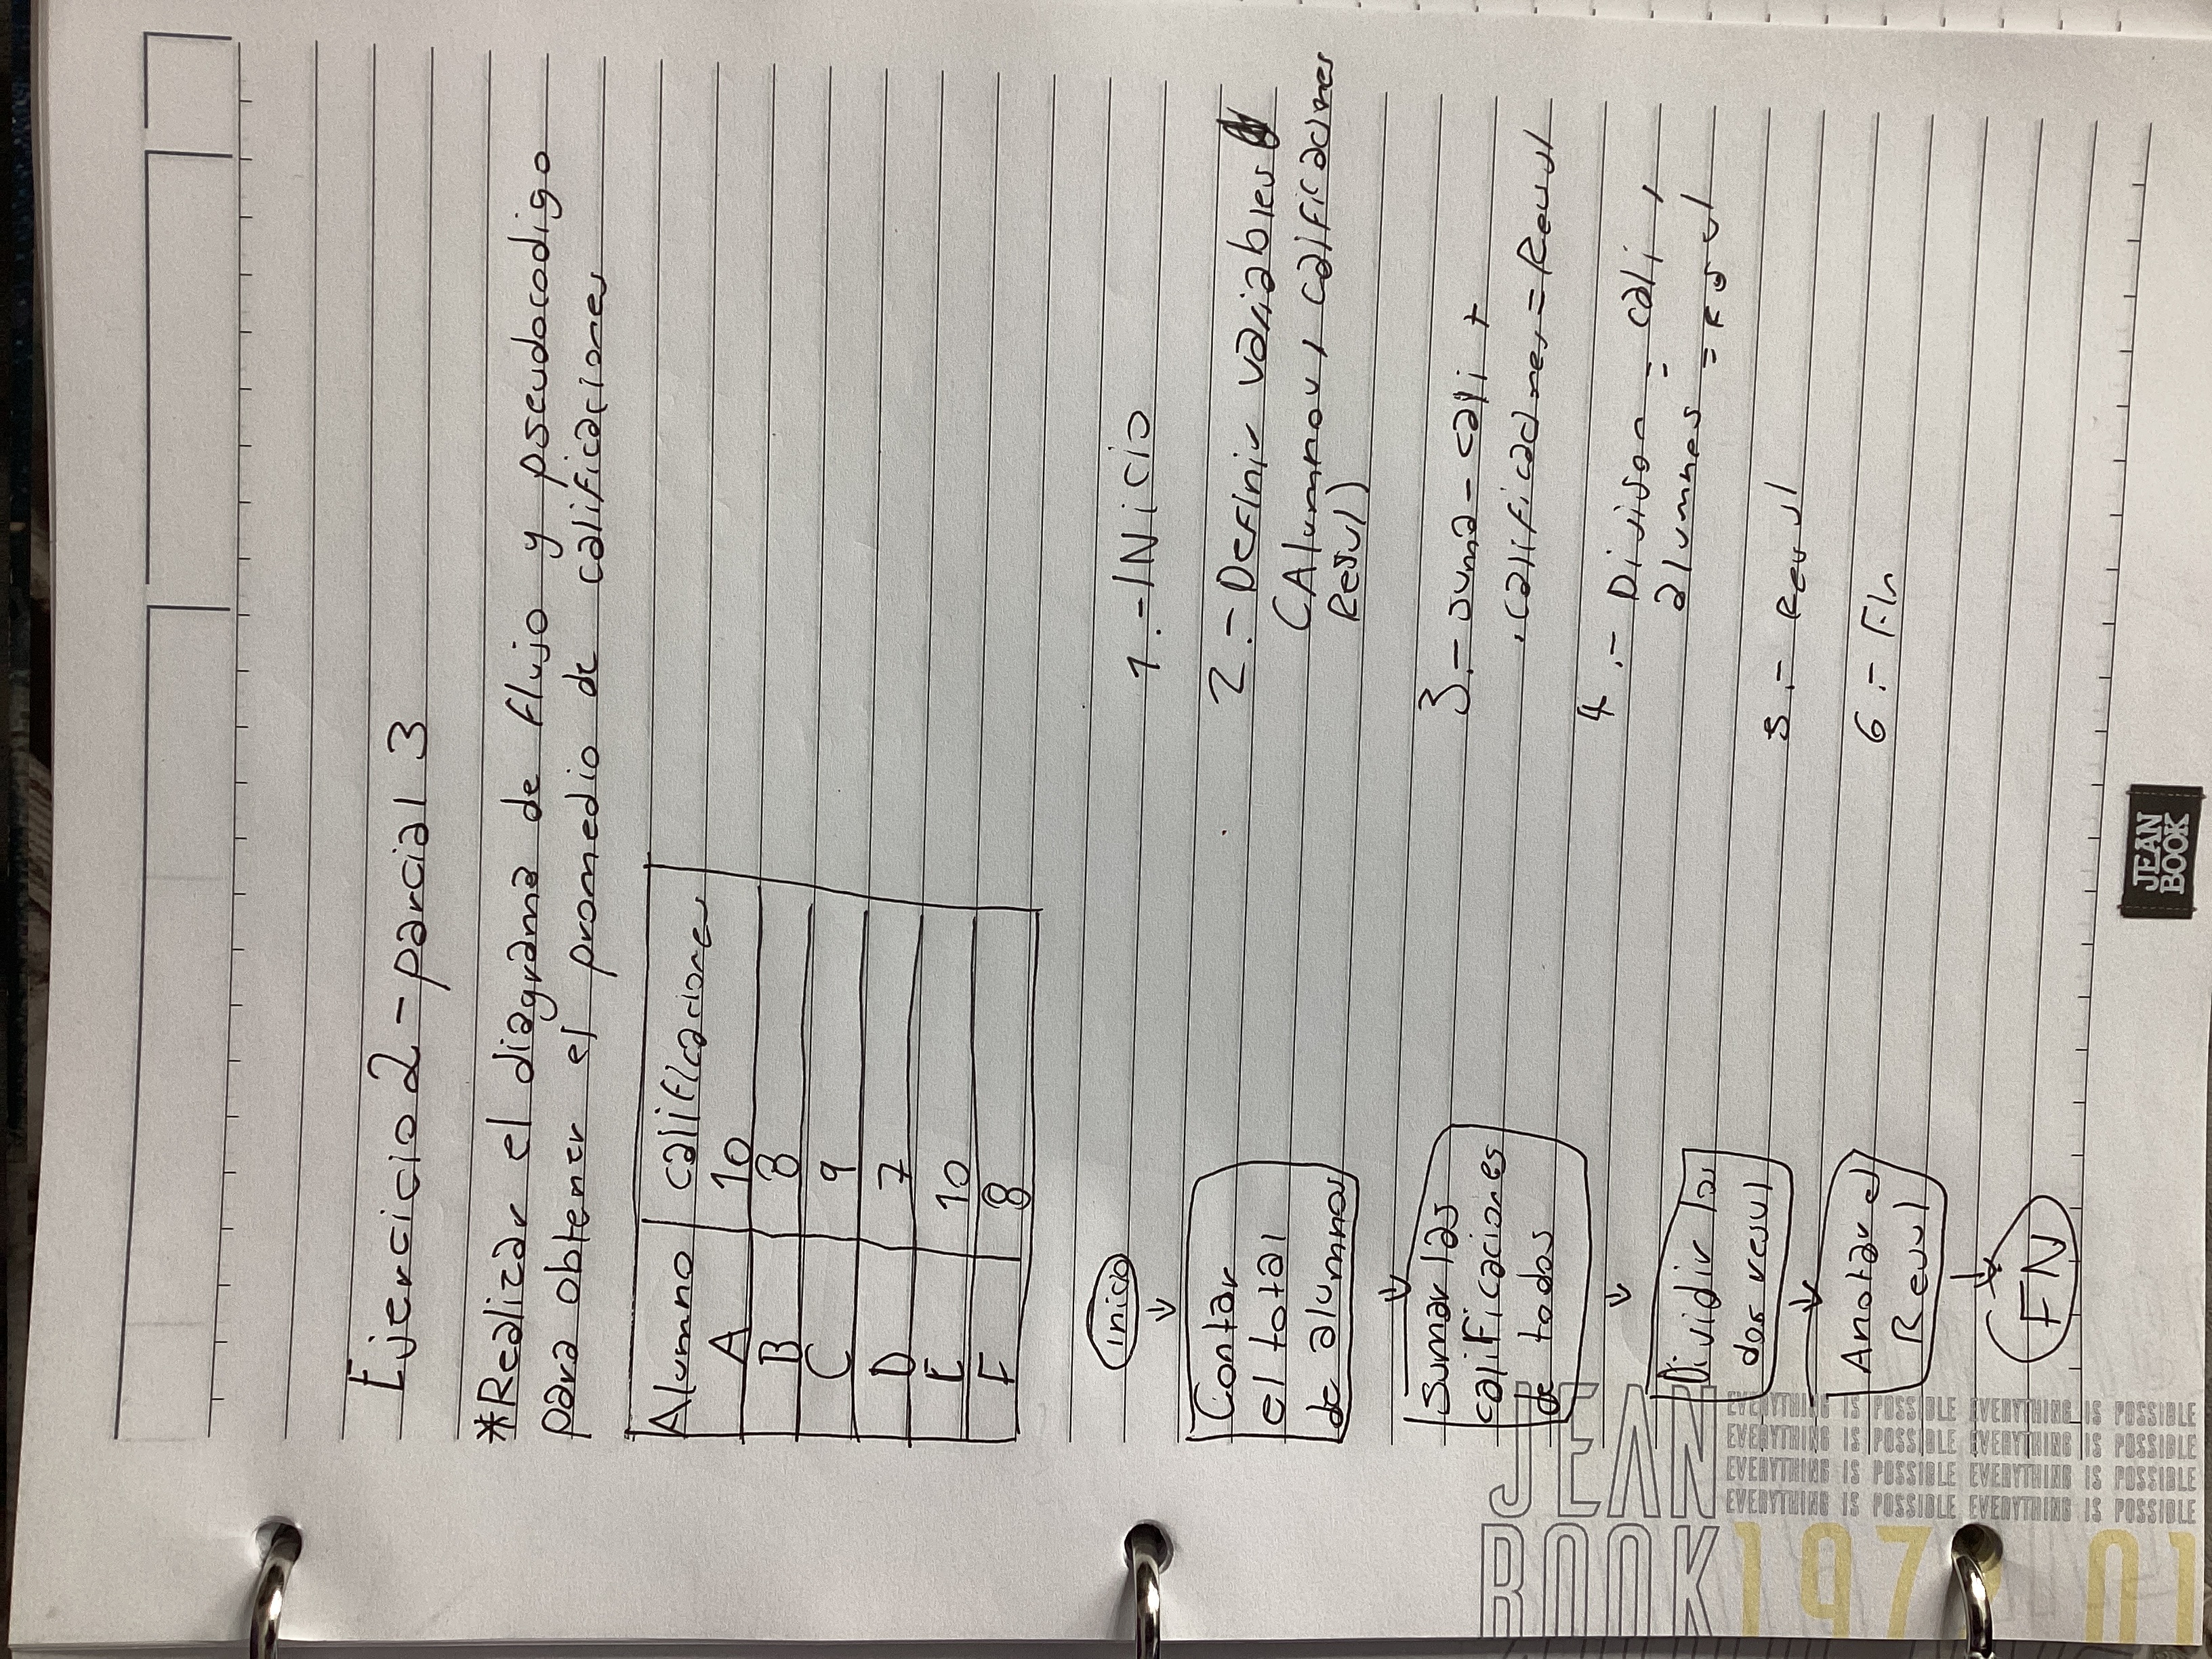 Ejercicio 2 - parcial 3
*Realizar el diagrama de flujo y pseudocodigo
para obtener el promedio de calificaciones
Alumno calificaciones
A 10
B 8
C 9
D 7
E 10
F 8
inicio
Contar
el total
de alumnos
Sumar las
calificaciones
de todos
Dividir los
dos resul
Anotar el
Resul
FIN
1.- INicio
2.- Definir variables
(Alumnos, calificaciones
Resul)
3.- suma - cali +
calificaciones = Resul
4.- Division = cali /
alumnos = rsul
5.- Resul
6.- Fin
JEAN
BOOK
JEAN
BOOK
EVERYTHING IS POSSIBLE EVERYTHING IS POSSIBLE
EVERYTHING IS POSSIBLE EVERYTHING IS POSSIBLE
EVERYTHING IS POSSIBLE EVERYTHING IS POSSIBLE
EVERYTHING IS POSSIBLE EVERYTHING IS POSSIBLE
01